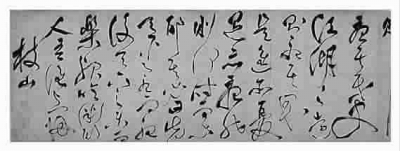 憂其民處
江湖之遠
則憂其君
是進亦憂
退亦憂然
則何時而樂
耶其必曰先
天下之憂而憂
後天下之樂而
樂歟噫微斯
人吾誰與歸
枝山